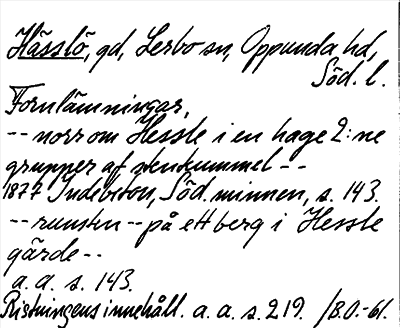 Hässlö, gd, Lerbo sn, Oppunda hd,
Söd. l.
Fornlämningar,
-- norr om Hessle i en hage 2:ne
grupper af stenkummel --
1877 Indebetou, Söd. minnen, s. 143.
-- runsten -- på ett berg i Hessle
gärde --
a. a. s. 143.
Ristningens innehåll. a. a. s. 219. /8.0.-61.